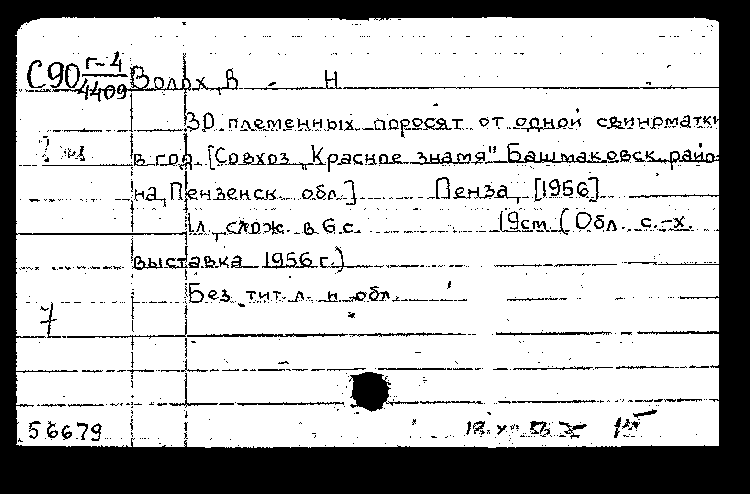 С90 г-4/4409 Волох, В. Н
30 племенных поросят от одной свиноматки
2
в год. [Совхоз „Красное знамя" Башмаковск. райо-
на, Пензенск. обл.] Пенза, [1956]
1л., слож. в 6 с. 19см (Обл. с.-х.
выставка 1956 г.)
Без тит. л. и обл.
7
56679